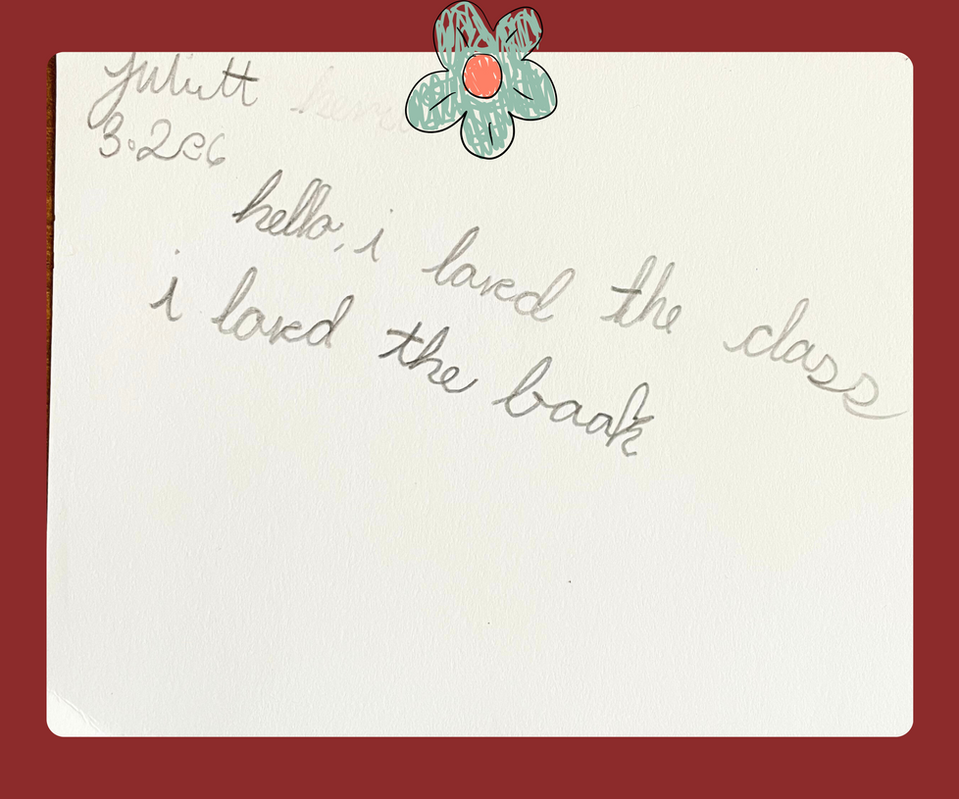 juliett
3.2026
hello, i loved the class
i loved the book